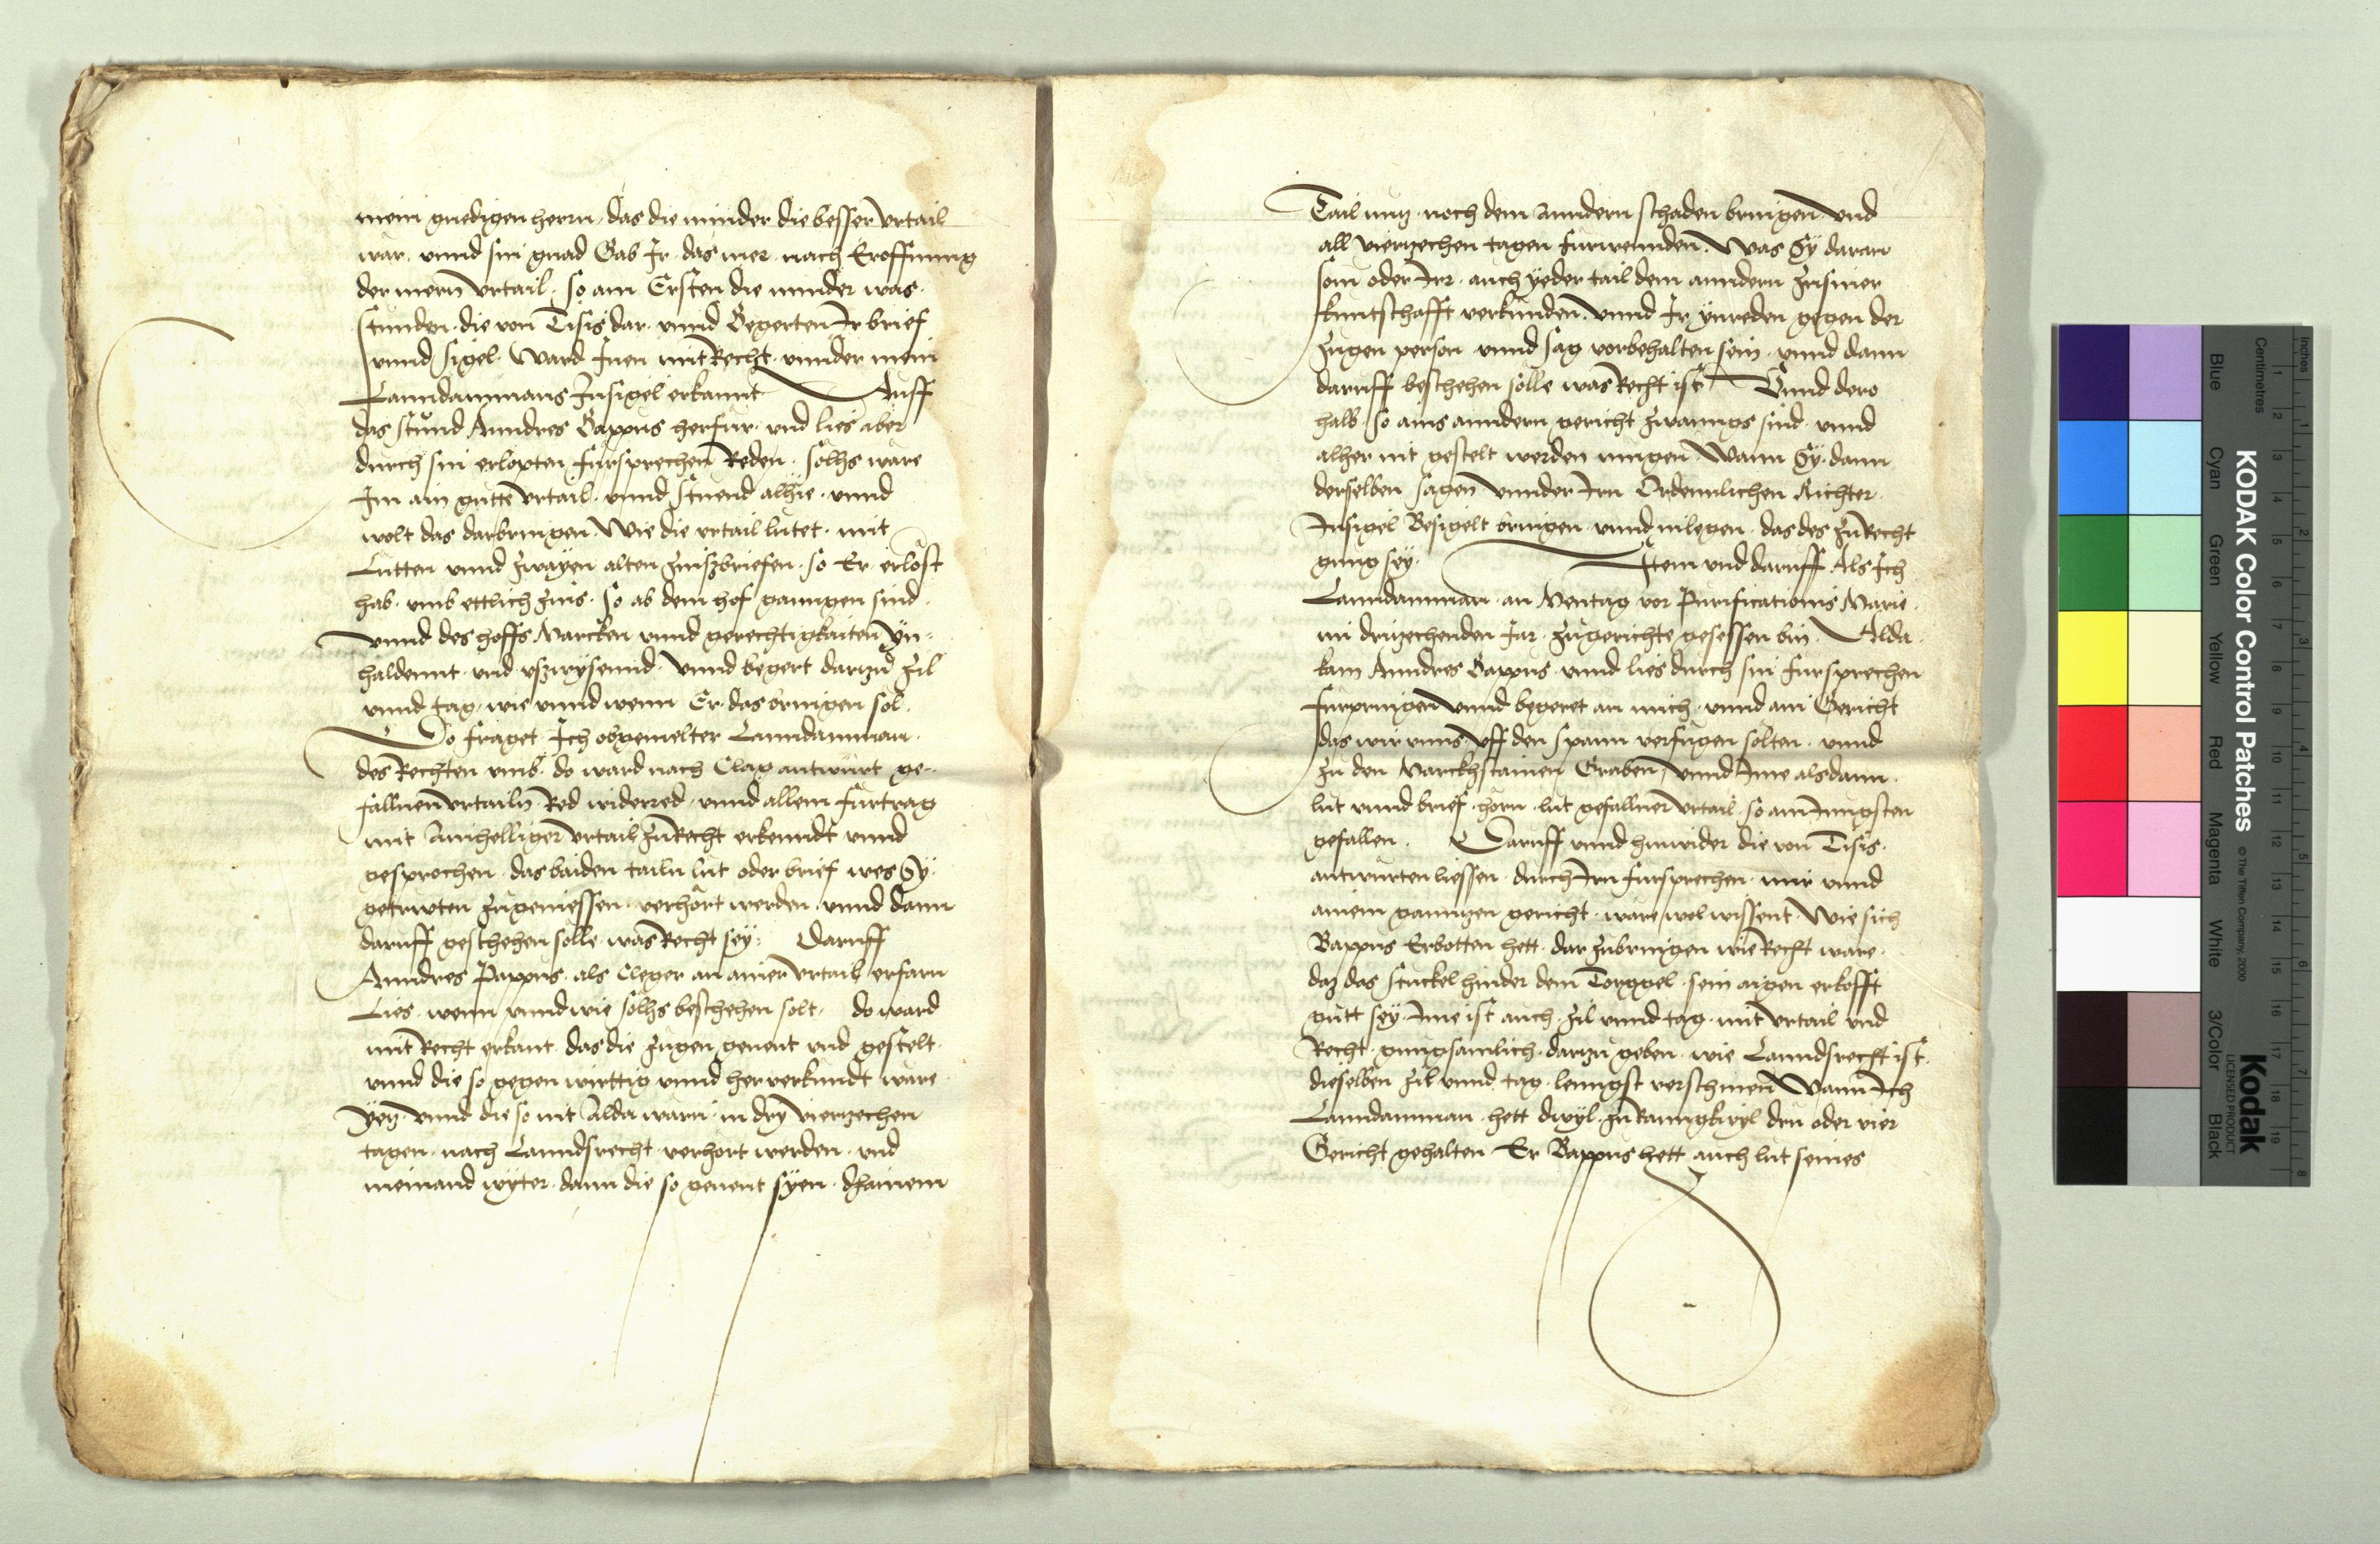 mein gnedigen herrn, das die minder die besser vrtail
wär. vnnd sin gnad Gab Jr. das mer. nach Eroffnung
der mern vrtail. so am Ersten die minder was.
stunden. die von Tisis dar. vnnd Begerten Ir brief
vnnd Sigel. Ward Inen mit Recht. vnnder mein
Lanndammans Insigel erkannt Auff
das stůnd Anndres Bappus herfür. vnd lies aber
durch sin erlopten fürsprechen Reden. sölhs wäre
Im ain gutte vrtail. vnnd stuend alhie. vnnd
wolt das darbringen. Wie die vrtail lutet. mit
Lütten vnnd zwayen alten zinszbriefen. so Er erlöst
hab. vmb ettlich zins. so ab dem hof ganngen sind.
vnnd des hoffs Marcken vnnd gerechtigkaiten Yn-
haldennt. vnd vszwysennd. vnnd begert darzů zil
vnnd tag. wie vnnd wenn Er. das bringen sol.
Do fraget. Ich obgemelter Lanndamman.
des Rechten vmb. do ward nach Clag antwürt ge-
fallnen vrtailn. Red widerred. vnnd allem fürtrag
mit Ainhelliger vrtail zů Recht erkenndt vnnd
gesprochen. das baiden tailn lüt oder brief wes Sy.
getrwten zůgeniessen. verhört werden. vnnd dann
daruff geschehen sölle. was Recht sey. Daruff
Anndres Pappus. als Cleger an ainer vrtail erfarn
Lies. wenn vnnd wie sölhs beschehen solt. do ward
mit Recht erkant. das die zügen genent vnd gestelt.
vnnd die so gegen wirttig vnnd her verkundt ware
Yez. vnnd die so nit Alda warn. in dry vierzechen
tagen. nach Lanndsrecht. verhört werden. vnd
niemand wyter. dann die so genent syen. dhainem
Tail nutz. noch dem Anndern schaden bringen. vnd
all vierzechen tagen fürwennden. Was Sy daran
som oder Irr. auch yeder tail dem anndern zu siner
kuntschafft verkünden. vnnd Ir ynreden gegen der
zügen person vnnd sag vorbehalten sein. vnnd dann
daruff beschehen sölle was Recht ist Vnnd dero
halb. so ains anndern gericht zwanngs sind. vnnd
alher nit gestelt werden mügen. Wann Sy. dann
derselben sagen vnnder Irn Ordennlichen Richter.
Insigel Besigelt bringen. vnnd inlegen. das des zů Recht
gnug sey. Item vnd daruff Als Ich
Lanndamman. an Mentag vor Purificationis Marie.
im drüzechenden Jar. zů gerichte gesessen bin. Alda.
kam Anndres Bappus. vnnd lies durch sin fürsprechen
fürpringen vnnd begeret an mich. vnnd ain Gericht
das wir vnns. vff den spann verfügen solten. vnnd
zu den Marckhstainen Graben, vnnd Ime alsdann.
lüt vnnd brief. hörn. lut gefallner vrtail. so am Jungsten
gefallen. Daruff vnnd hinwider die von Tisis.
antwurten liessen. durch Irn fürsprechen. mir vnnd
ainem ganntzen gericht. ware wol wissent. Wie sich
Bappus Erbotten hett. dar zubringen wie Recht ware.
daz das stuckel hinder dem Torggel. sein aigen erkofft
gůtt sey. Ime ist auch. zil vnnd tag. mit vrtail vnd
Recht. gnugsamlich. darzů geben. wie Lanndsrecht ist.
dieselben zil vnnd tag. lenngst verschinen Wann Ich
Lanndamman. hett diwyl zů Ranngkwyl drü oder vier
Gericht gehalten Er Bappus hett auch lut seines
KODAK Color Control Patches
© The Tiffen Company, 2000
Kodak
LICENSED PRODUCT
Inches
Centimetres
Blue
Cyan
Green
Yellow
Red
Magenta
White
3/Color
Black